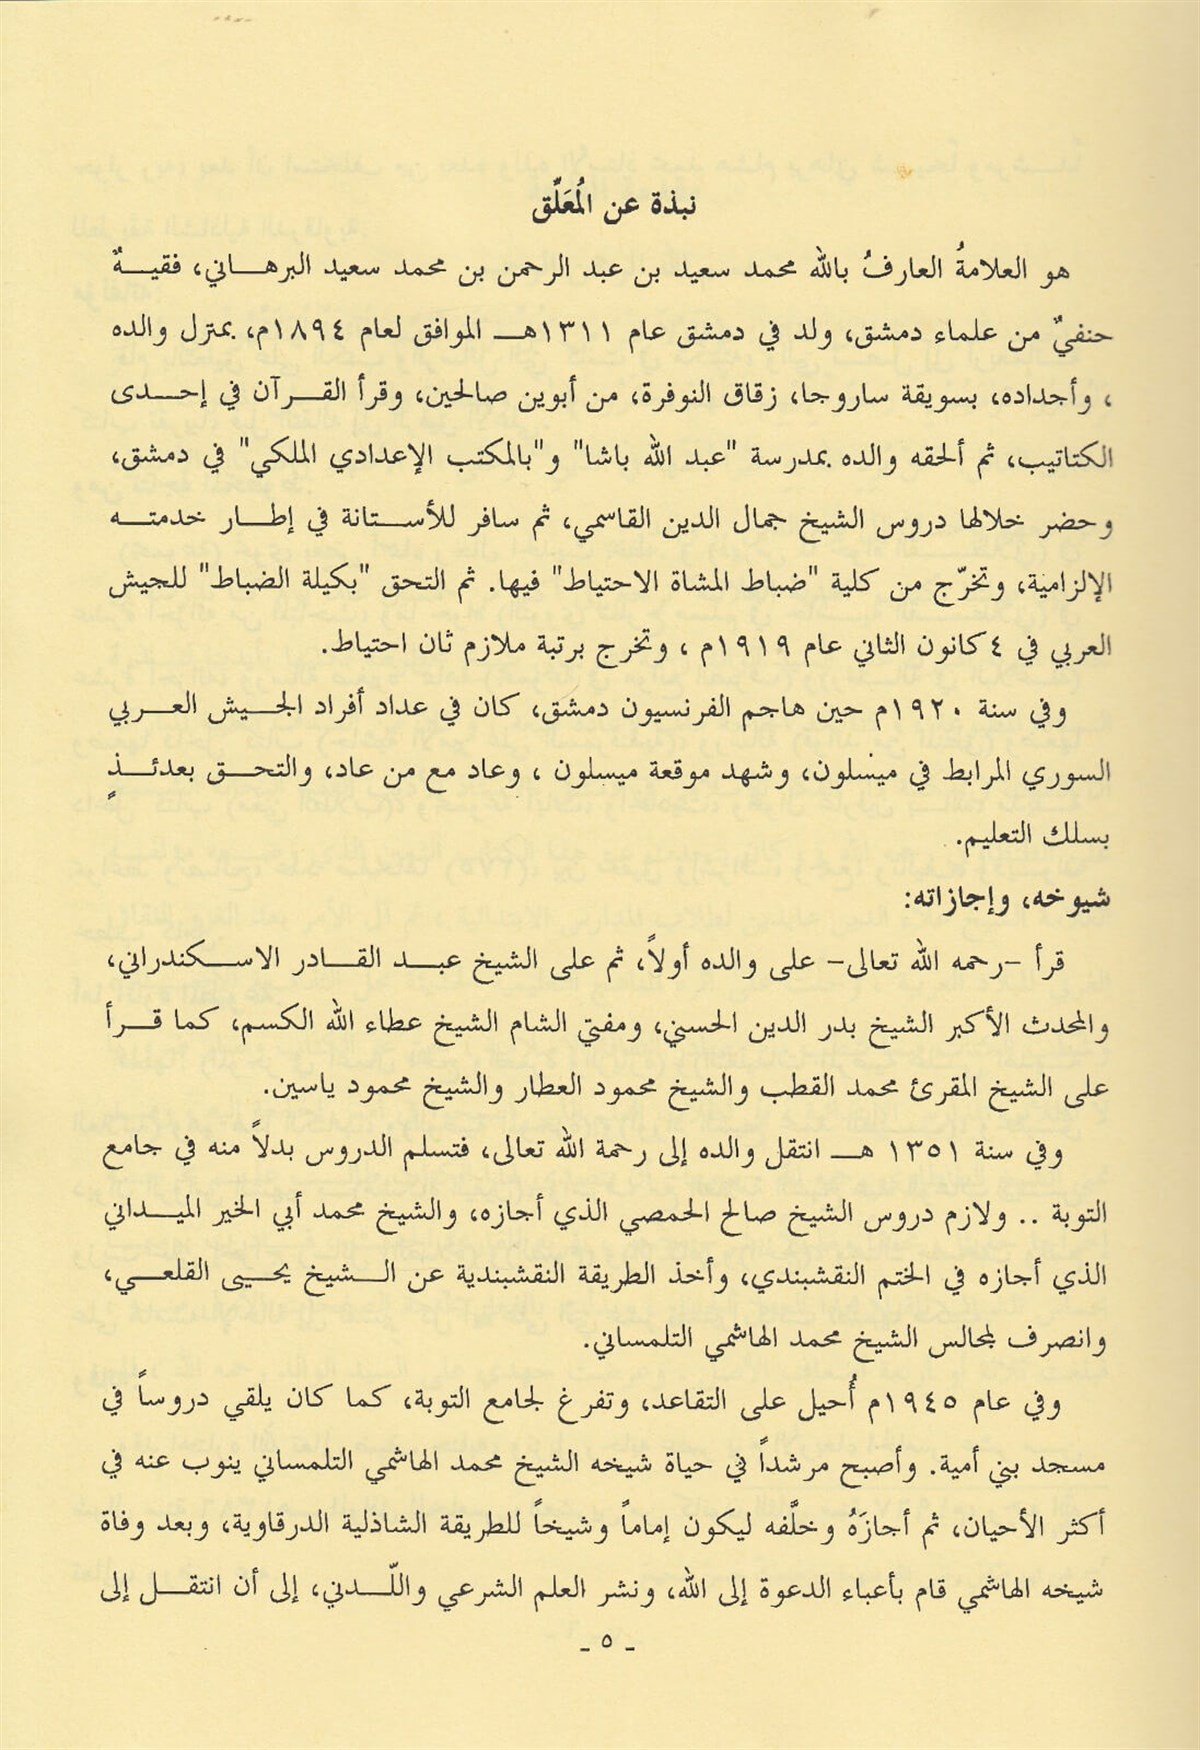 نبذة عن المُعَلِّق
هو العلامةُ العارفُ بالله محمد سعيد بن عبد الرحمن بن محمد سعيد البرهاني، فقيهٌ
حنفيٌ من علماء دمشق، ولد في دمشق عام ١٣١١هـ الموافق لعام ١٨٩٤م، بمنزل والده
، وأجداده، بسويقة ساروجا، زقاق النوفرة، من أبوين صالحين، وقرأ القرآن في إحدى
الكتاتيب، ثم ألحقه والده بمدرسة "عبد الله باشا" و"بالمكتب الإعدادي الملكي" في دمشق،
وحضر خلالها دروس الشيخ جمال الدين القاسمي، ثم سافر للأستانة في إطار خدمته
الإلزامية، وتخرّج من كلية "ضباط المشاة الاحتياط" فيها. ثم التحق "بكيلة الضباط" للجيش
العربي في ٤ كانون الثاني عام ١٩١٩م ، وتخرج برتبة ملازم ثان احتياط.
وفي سنة ١٩٢٠م حين هاجم الفرنسيون دمشق، كان في عداد أفراد الجيش العربي
السوري المرابط في ميسلون، وشهد موقعة ميسلون ، وعاد مع من عاد، والتحق بعدئذٍ
بسلك التعليم.
شيوخه، وإجازاته:
قرأ -رحمه الله تعالى- على والده أولاً، ثم على الشيخ عبد القادر الاسكندراني،
والمحدث الأكبر الشيخ بدر الدين الحسني، ومفتي الشام الشيخ عطاء الله الكسم، كما قرأ
على الشيخ المقرئ محمد القطب والشيخ محمود العطار والشيخ محمود ياسين.
وفي سنة ١٣٥١ هـ انتقل والده إلى رحمة الله تعالى، فتسلم الدروس بدلاً منه في جامع
التوبة .. ولازم دروس الشيخ صالح الحمصي الذي أجازه، والشيخ محمد أبي الخير الميداني
الذي أجازه في الختم النقشبندي، وأخذ الطريقة النقشبندية عن الشيخ يحيى القلعي،
وانصرف لمجالس الشيخ محمد الهاشمي التلمساني.
وفي عام ١٩٤٥م أُحيل على التقاعد، وتفرغ لجامع التوبة، كما كان يلقي دروساً في
مسجد بني أمية. وأصبح مرشداً في حياة شيخه الشيخ محمد الهاشمي التلمساني ينوب عنه في
أكثر الأحيان، ثم أجازَهُ وخلَّفه ليكون إماماً وشيخاً للطريقة الشاذلية الدرقاوية، وبعد وفاة
شيخه الهاشمي قام بأعباء الدعوة إلى الله، ونشر العلم الشرعي واللّدني، إلى أن انتقل إلى
- ٥ -